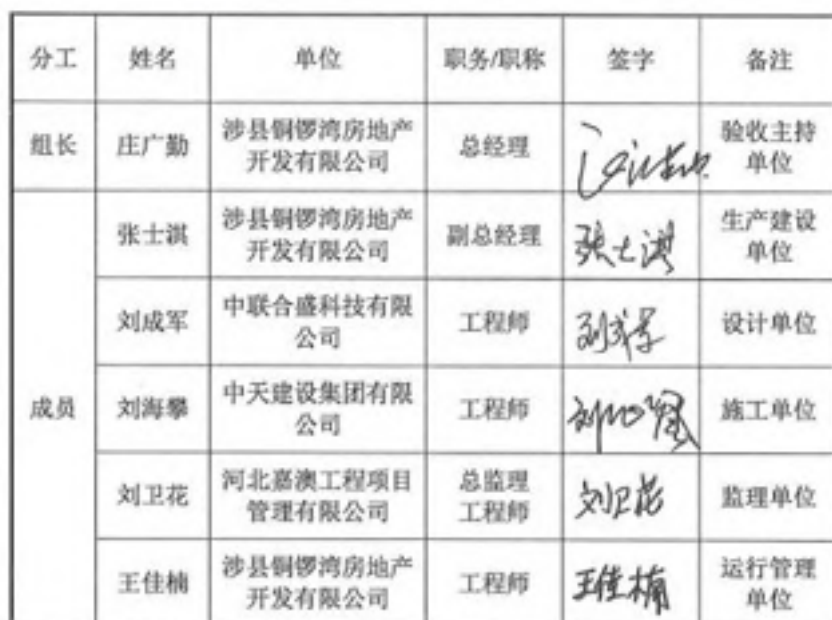 分工 姓名 单位 职务/职称 签字 备注
组长 庄广勤 涉县铜锣湾房地产开发有限公司 总经理 验收主持单位
成员 张士淇 涉县铜锣湾房地产开发有限公司 副总经理 张士淇 生产建设单位
刘成军 中联合盛科技有限公司 工程师 刘成军 设计单位
刘海攀 中天建设集团有限公司 工程师 施工单位
刘卫花 河北嘉澳工程项目管理有限公司 总监理工程师 刘卫花 监理单位
王佳楠 涉县铜锣湾房地产开发有限公司 工程师 王佳楠 运行管理单位